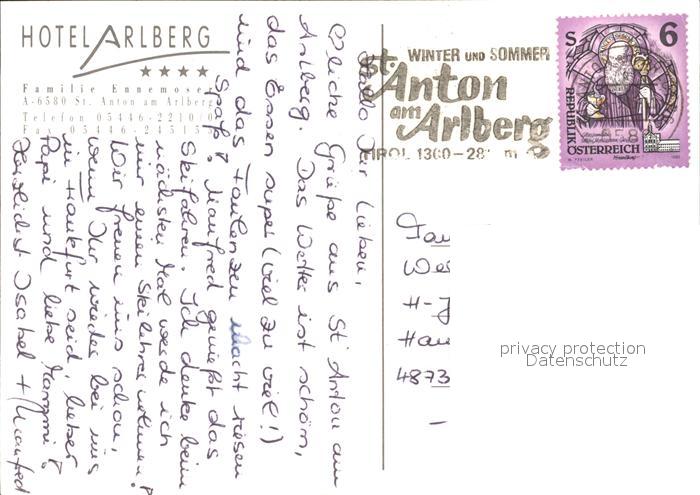 HOTEL ARLBERG
★★★★
Familie Ennemoser
A-6580 St. Anton am Arlberg
Telefon 05446-22100
Fax 05446-24515
WINTER UND SOMMER
St. Anton
am
Arlberg
TIROL 1300-28 m
S 6
REPUBLIK
ÖSTERREICH
Hallo Ihr Lieben,
♡liche Grüße aus St. Anton am
Arlberg. Das Wetter ist schön,
das Essen super (viel zu viel!)
und das Faulenzen macht riesen
Spaß. Manfred genießt das
Skifahren. Ich denke beim
nächsten Mal werde ich
mir einen Skilehrer nehmen!
Wir freuen uns schon,
wenn Ihr wieder bei uns
in Frankfurt seid, lieber
Papi und liebe Mammi!
Herzlichst Isabel + Manfred
Fam
We
H-J
Hau
4873
privacy protection
Datenschutz